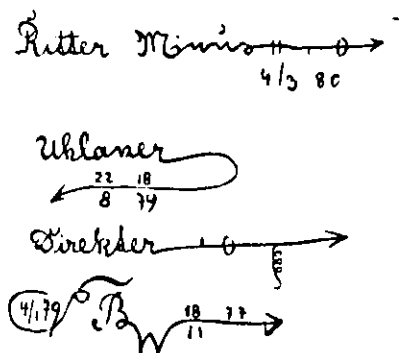 Ritter Minis
4/3 80
Uhlaner
22 18
8 74
Direkter
4/1 79 B 18 77
11